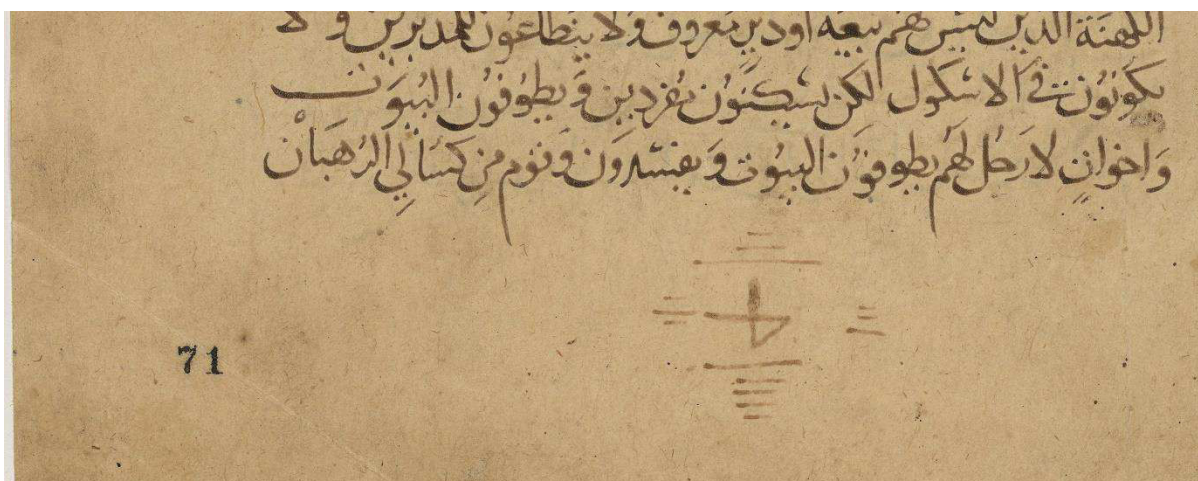 الكهنة الذين ليس لهم بيعه اودير معروف ولا يتطاعون للمدبرين ولا
يكونون في الاسكول لكن يسكنون مفردين ويطوفون البيوت
واخوان لا رحل لهم يطوفون البيوت ويفسدون وقوم من كسالي الرهبان
71